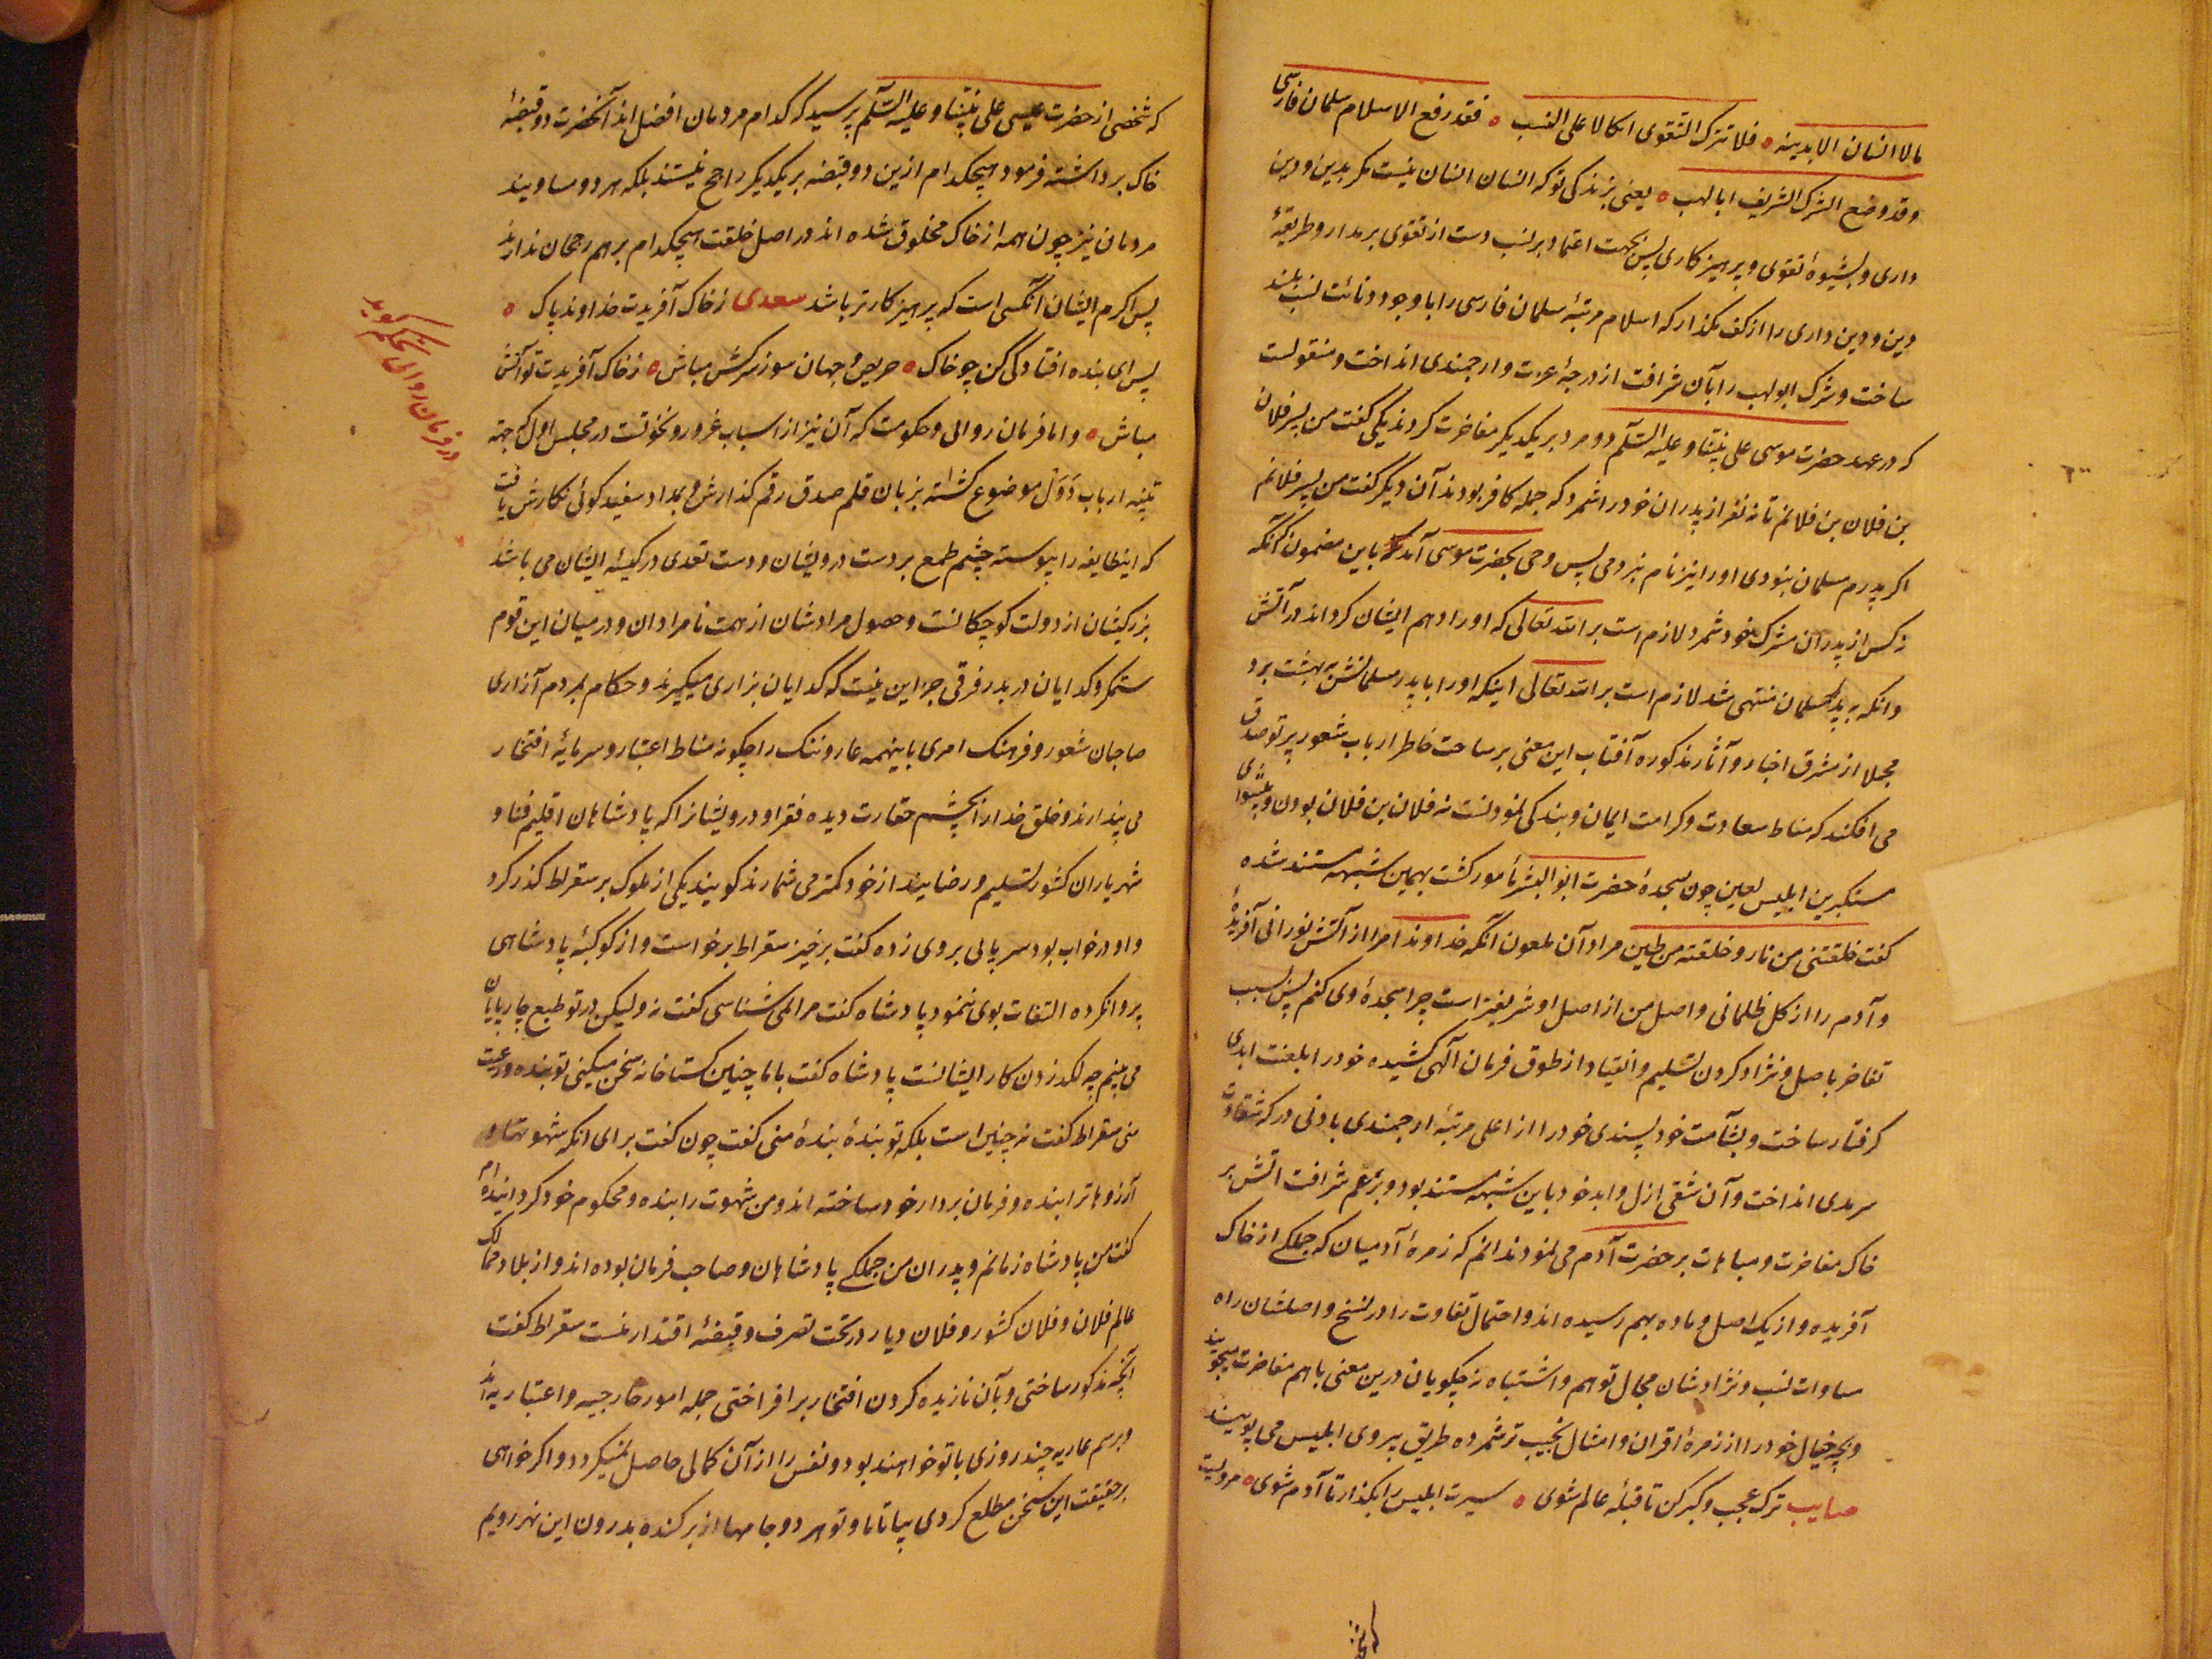 ما لا انسان الا بدینه ٥ فلا تترک التقوی اتکالا علی النسب ٥ فقد رفع الاسلام سلمان فارسی
و قد وضع الشرک الشریف ابا لهب ٥ یعنی بزندگی تو که انسان انسان نیست مگر بدین و دین
داری و بشیوهٔ تقوی و پرهیزکاری پس بجهت اعتماد بر نسب دست از تقوی برمدار و طریقهٔ
دین و دین داری را از کف مگذار که اسلام مرتبهٔ سلمان فارسی را با وجود دنائت نسب بلند
ساخت و شرک ابولهب را با آن شرافت از درجهٔ عزت و ارجمندی انداخت و منقولست
که در عهد حضرت موسی علی نبینا و علیه السلم دو مرد بر یکدیگر مفاخرت کردند یکی گفت من پسر فلان
بن فلان بن فلانم تا نه نفر از پدران خود را شمرد که جمله کافر بودند آن دیگر گفت من پسر فلانم
اگر پدرم مسلمان نبودی او را نیز نام نبردمی پس وحی بحضرت موسی آمد باین مضمون که آنکه
نه کس از پدران مشرک خود شمرد لازم است بر الله تعالی که او را دهم ایشان گرداند در آتش
و آنکه به پدر مسلمان منتهی شد لازم است بر الله تعالی اینکه او را با پدر مسلمانش به بهشت برد
مجملا از مشرق اخبار و آثار مذکوره آفتاب این معنی بر ساحت خاطر ارباب شعور پرتو صدق
می افکند که مناط سعادت و کرامت ایمان و بندگی نمودنست نه فلان بن فلان بودن و پیشوای
مستکبرین ابلیس لعین چون بسجدهٔ حضرت ابو البشر مأمور گشت بهمین شبهه مستند شده
گفت خلقتنی من نار و خلقته من طین مراد آن ملعون آنکه خداوندا مرا از آتش نورانی آفریدهٔ
و آدم را از گل ظلمانی و اصل من از اصل او شریفتر است چرا سجدهٔ وی کنم پس بسبب
تفاخر باصل و نژاد گردن تسلیم و انقیاد از طوق فرمان الهی کشیده خود را بلعنت ابدی
گرفتار ساخت و بشآمت خود پسندی خود را از اعلی مرتبهٔ ارجمندی بادنی درکه شقاوت
سرمدی انداخت و آن شقی ازل و ابد خود باین شبهه مستند بود و بزعم شرافت آتش بر
خاک مفاخرت و مباهات بر حضرت آدم می نمود ندانم که زمرهٔ آدمیان که جملگی از خاک
آفریده و از یک اصل و ماده بهم رسیده اند و احتمال تفاوت را در نسخ و اصلشان راه
مساوات نسب و نژادشان مجال توهم و اشتباه نه چگویان درین معنی با هم مفاخرت میجویند
و بچه خیال خود را از زمرهٔ اقران و امثال نجیب تر شمرده طریق پیروی ابلیس می پویند
صایب ترک عجب و کبر کن تا قبلهٔ عالم شوی ٥ سیرت ابلیس را بگذار تا آدم شوی ٥ مرویست
که شخصی از حضرت عیسی علی نبینا و علیه السلم پرسید که کدام مردمان افضل اند آنحضرت دو قبضهٔ
خاک برداشته فرمود هیچکدام ازین دو قبضه بر یکدیگر راجح نیستند بلکه هر دو مساویند
مردمان نیز چون همه از خاک مخلوق شده اند در اصل خلقت هیچکدام بر هم رجحان ندارند
پس اکرم ایشان آنکسی است که پرهیزکارتر باشد سعدی ز خاک آفریدت خداوند پاک ٥
پس ای بنده افتادگی کن چو خاک ٥ حریص و جهان سوز و سرکش مباش ٥ ز خاک آفریدت تو آتش
مباش ٥ و اما فرمان روائی و حکومت که آن نیز از اسباب غرور و نخوتست در مجلس اول که جهة
تنبیه ارباب دول موضوع گشته بزبان قلم صدق رقم گذارش و بمداد سفید گوئی نگارش یافت
که اینطایفه را پیوسته چشم طمع بر دست درویشان و دست تعدی در کیسهٔ ایشان می باشد
بزرگیشان از دولت کوچکانست و حصول مرادشان از همت نامرادان و در میان این قوم
ستمگر و گدایان در بدر فرقی جز این نیست که گدایان بزاری میگیرند و حکام بمردم آزاری
صاحبان شعور و فرهنگ امری با اینهمه عار و ننگ را چگونه مناط اعتبار و سرمایهٔ افتخار
می پندارند و خلق خدا را بچشم حقارت دیده فقرا و درویشانرا که پادشاهان اقلیم فنا و
شهریاران کشور تسلیم و رضایند از خود کمتر می شمارند گویند یکی از ملوک بر سقراط گذر کرد
و او در خواب بود سر پائی بر وی زده گفت برخیز سقراط برخواست و از کوکبهٔ پادشاهی
پروا نکرده التفات بوی ننمود پادشاه گفت مرا نمی شناسی گفت نه ولیکن در تو طبع چارپایان
می بینم چه لگد زدن کار ایشانست پادشاه گفت با ما چنین گستاخانه سخن میکنی تو بنده و رعیت
منی سقراط گفت نه چنین است بلکه تو بندهٔ بندهٔ منی گفت چون گفت برای آنکه شهوتها و
آرزوها ترا بنده و فرمان بردار خود ساخته اند و من شهوت را بنده و محکوم خود گردانیده ام
گفت من پادشاه زمانم و پدران من جملگی پادشاهان و صاحب فرمان بوده اند و از بلاد و ممالک
عالم فلان و فلان کشور و فلان دیار در تحت تصرف و قبضهٔ اقتدار منست سقراط گفت
آنچه مذکور ساختی و بآن نازیده گردن افتخار برافراختی جمله امور خارجیه و اعتباریه اند
و برسم عاریه چند روزی با تو خواهند بود و نفس را از آن کمالی حاصل نمیگردد و اگر خواهی
بر حقیقت این سخن مطلع گردی بیا تا ما و تو هر دو جامها از بر کنده بدرون این نهر رویم
در فرمان روائی و تحکم گوید